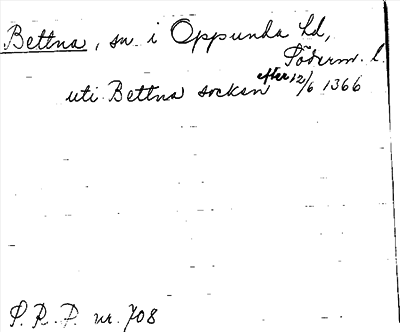 Bettna, sn i Oppunda hd,
Söderm. l.
uti Bettna socken efter 12/6 1366
S. R. P. nr. 708